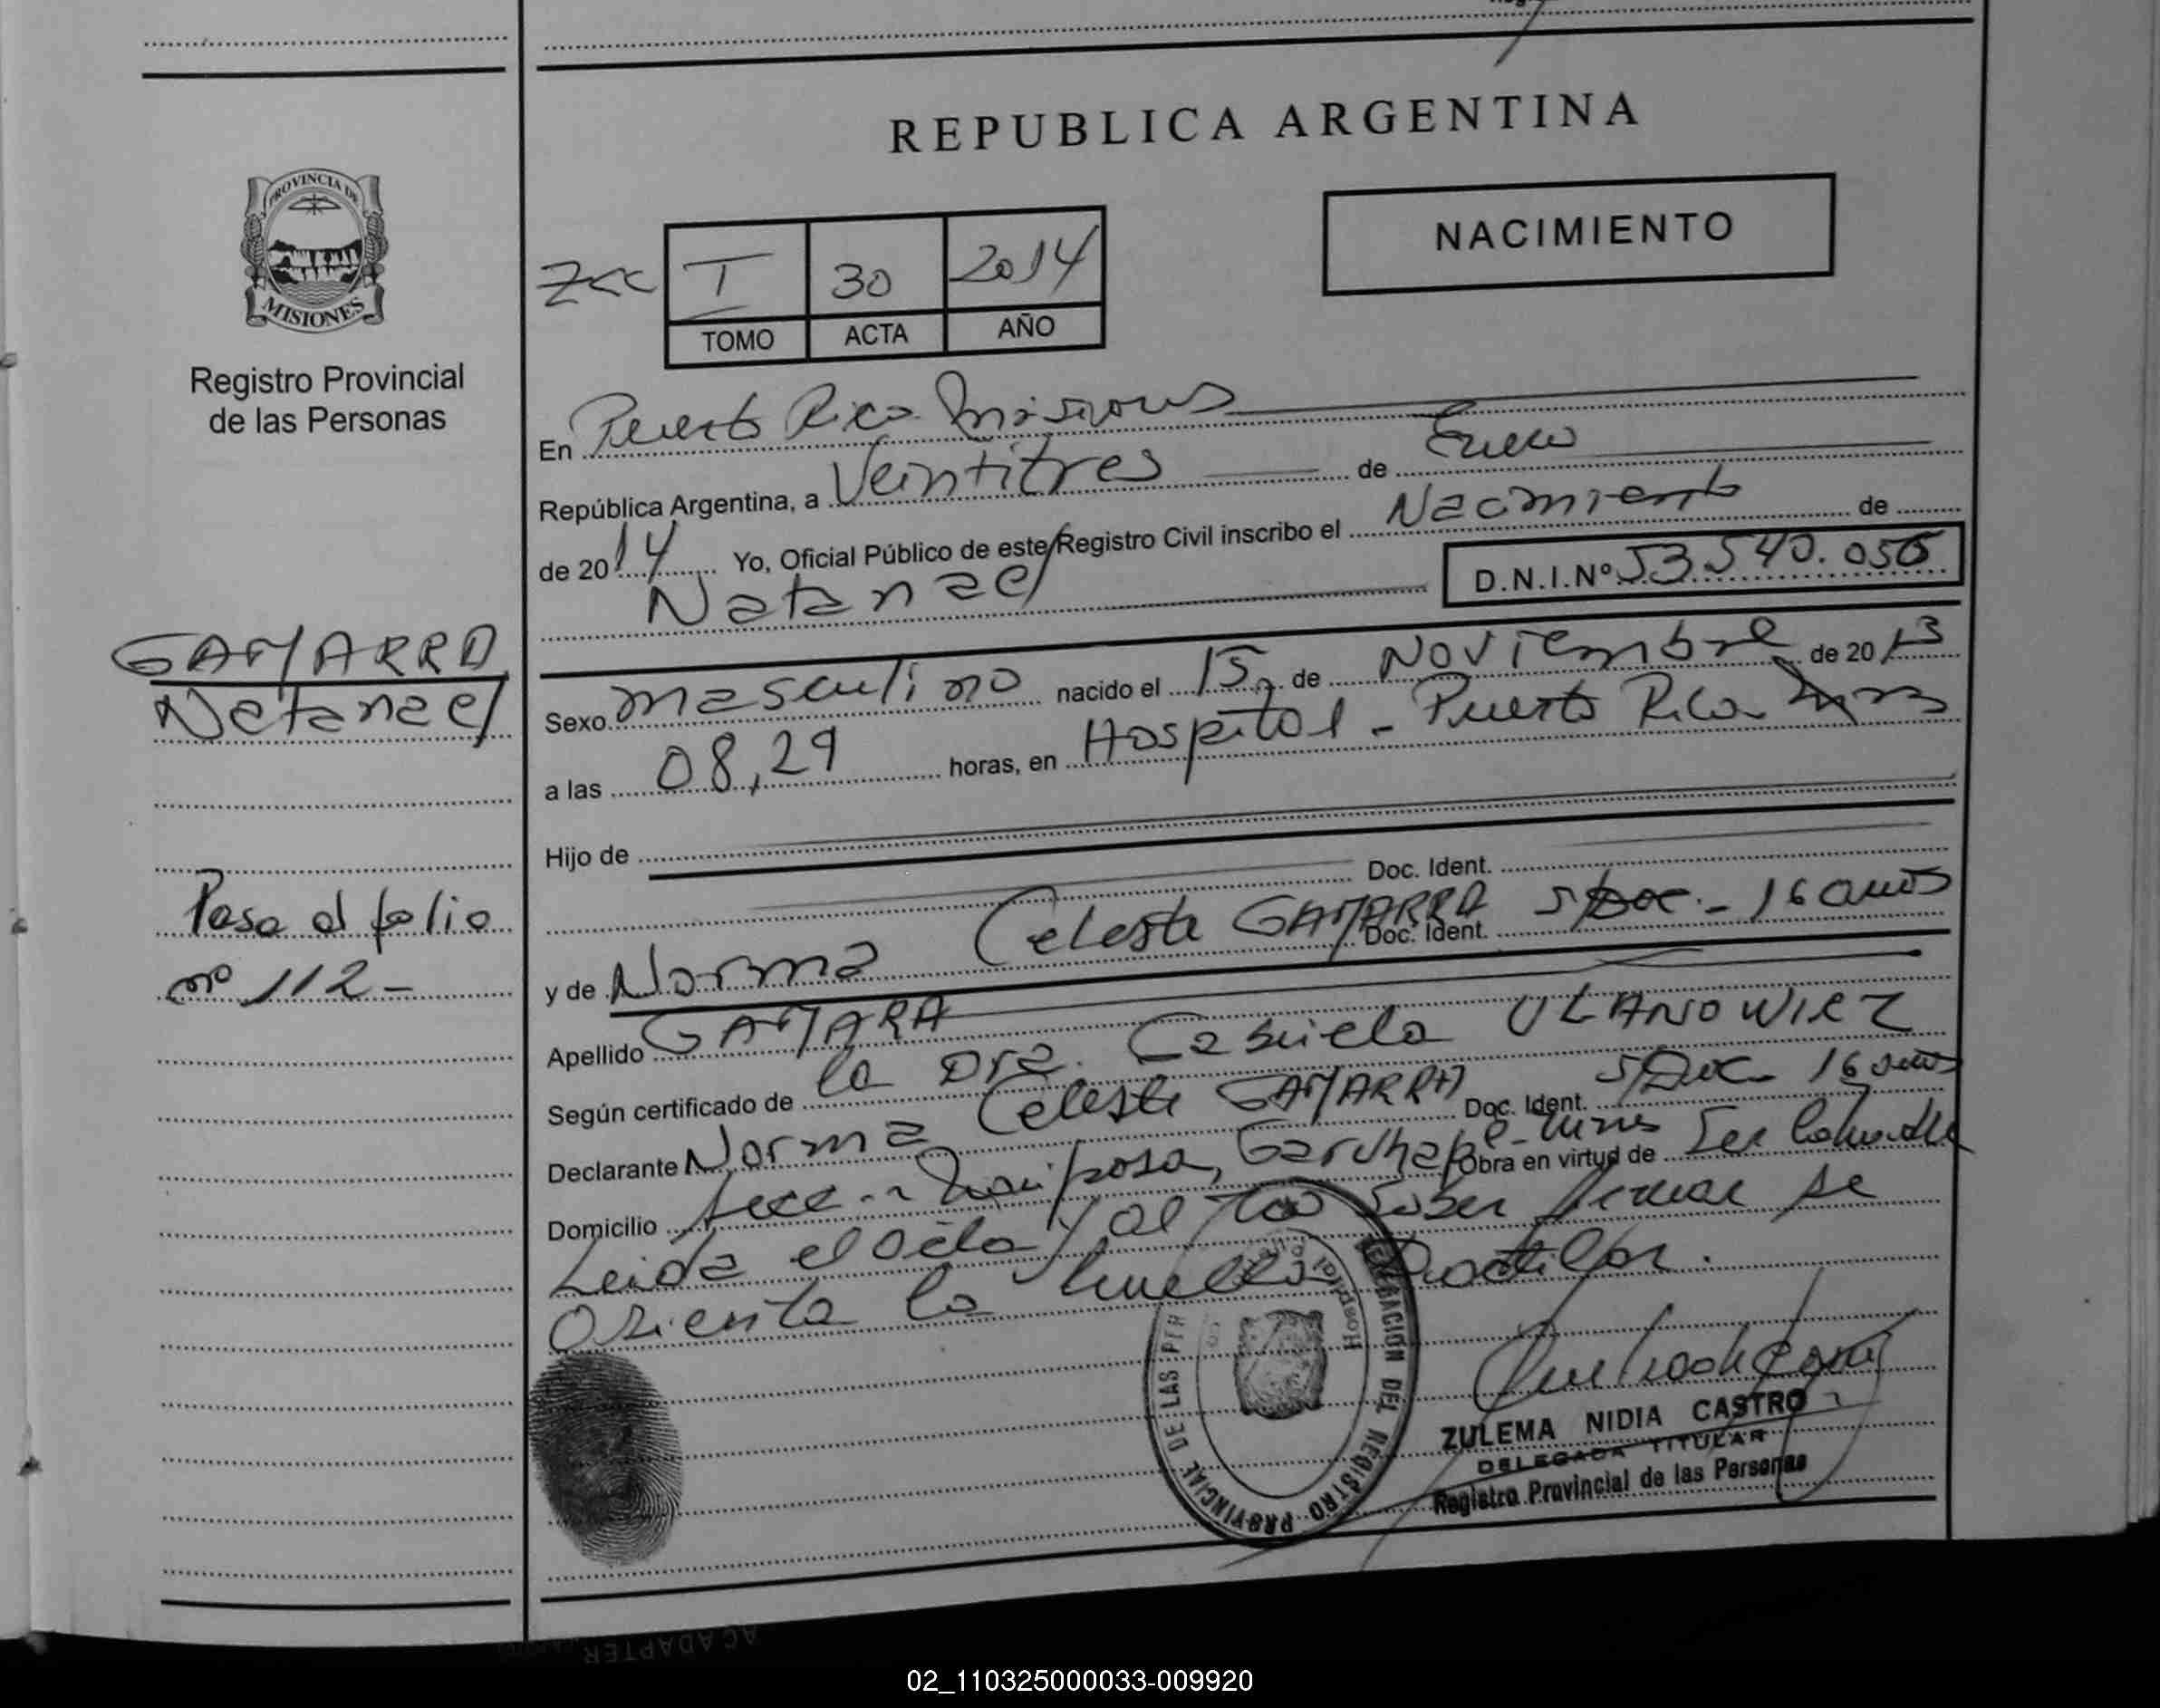 REPUBLICA ARGENTINA
NACIMIENTO
PROVINCIA DE
MISIONES
Registro Provincial
de las Personas
I 30 2014
TOMO ACTA AÑO
En Puerto Rico Misiones
República Argentina, a Veintitres de Enero
de 2014 Yo, Oficial Público de este Registro Civil inscribo el Nacimiento de
Natanael D.N.I.Nº 53.540.056
GAMARRA
Natanael
Sexo masculino nacido el 15 de Noviembre de 2013
a las 08,29 horas, en Hospital - Puerto Rico
Hijo de
Doc. Ident.
Pasa al folio
nº 112-
y de Norma Celeste GAMARRA Doc. Ident. s/Doc. - 16 años
Apellido GAMARA
Según certificado de la Dra. Gabriela ULANOWICZ
Declarante Norma Celeste GAMARRA Doc. Ident. s/Doc. 16 años
Domicilio Mariposa, Garuhape - Mnes Obra en virtud de Ser la madre
Leida el acta y al no saber firmar se
la huella Dactilar.
DELEGACION DEL REGISTRO PROVINCIAL DE LAS PER
Hospital
ZULEMA NIDIA CASTRO
DELEGADA TITULAR
Registro Provincial de las Personas
AC ADAPTER
02_110325000033-009920